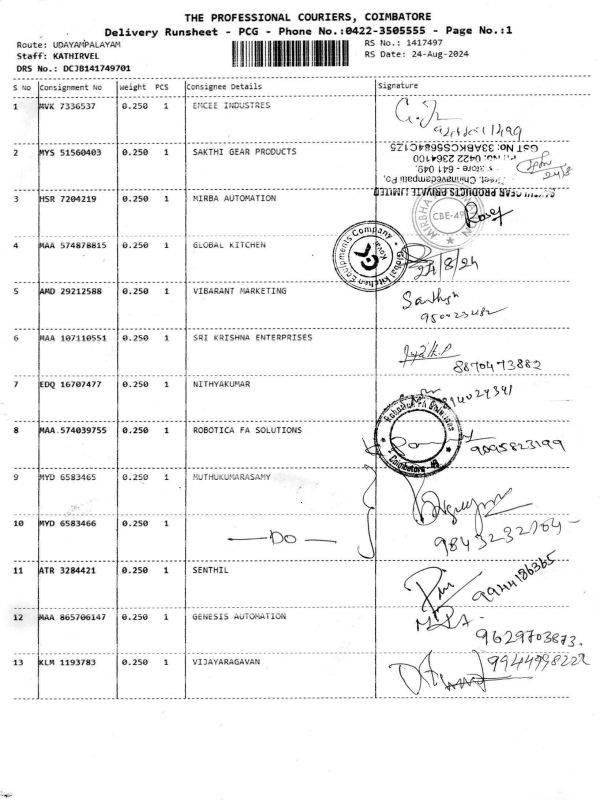 THE PROFESSIONAL COURIERS, COIMBATORE
Delivery Runsheet - PCG - Phone No.:0422-3505555 - Page No.:1
Route: UDAYAMPALAYAM
RS No.: 1417497
Staff: KATHIRVEL
RS Date: 24-Aug-2024
DRS No.: DCJB141749701
S No Consignment No Weight PCS Consignee Details Signature
1 MVK 7336537 0.250 1 EMCEE INDUSTRES
2 MYS 51560403 0.250 1 SAKTHI GEAR PRODUCTS
GST No: 33ABKCS5684C1Z5
0422 2364100
641 049.
Chinnavedampatti Po,
GEAR PRODUCTS PRIVATE LIMITED
24/8
3 HSR 7204219 0.250 1 MIRBA AUTOMATION
MIRBHA
CBE-49
4 MAA 574878815 0.250 1 GLOBAL KITCHEN
Global Kitchen Equipments Company
Kovai
24/8/24
5 AMD 29212588 0.250 1 VIBARANT MARKETING
6 MAA 107110551 0.250 1 SRI KRISHNA ENTERPRISES
8870473882
7 EDQ 16707477 0.250 1 NITHYAKUMAR
8 MAA 574039755 0.250 1 ROBOTICA FA SOLUTIONS
Robotica FA Solutions
Coimbatore - 49
9095823199
9 MYD 6583465 0.250 1 MUTHUKUMARASAMY
10 MYD 6583466 0.250 1
— DO —
9843232704
11 ATR 3284421 0.250 1 SENTHIL
9944186365
12 MAA 865706147 0.250 1 GENESIS AUTOMATION
9629703873.
13 KLM 1193783 0.250 1 VIJAYARAGAVAN
9944998222